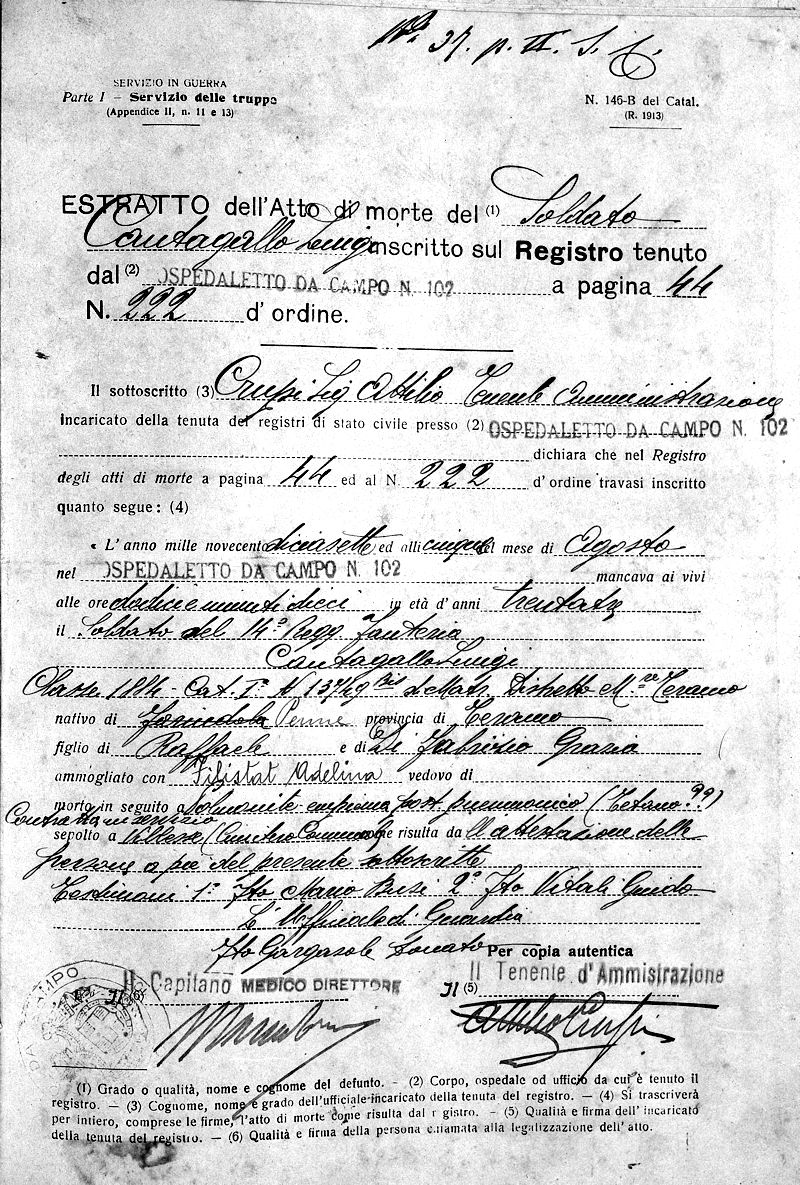 N° 37. p. II. S. C.
SERVIZIO IN GUERRA
Parte I – Servizio delle truppe
(Appendice II, n. 11 e 13)
N. 146-B del Catal.
(R. 1913)
ESTRATTO dell'Atto di morte del (1) Soldato
Cantagallo Luigi inscritto sul Registro tenuto
dal (2) OSPEDALETTO DA CAMPO N. 102 a pagina 44
N. 222 d'ordine.
Il sottoscritto (3) Crupi Sig Attilio Tenente Amministrazione
incaricato della tenuta dei registri di stato civile presso (2) OSPEDALETTO DA CAMPO N. 102
dichiara che nel Registro
degli atti di morte a pagina 44 ed al N. 222 d'ordine travasi inscritto
quanto segue: (4)
« L'anno mille novecento diciasette ed alli cinque del mese di Agosto
nel OSPEDALETTO DA CAMPO N. 102 mancava ai vivi
alle ore dodici e minuti dieci in età d'anni trentatre
il Soldato del 14° Regg Fanteria
Cantagallo Luigi
Classe 1884 - Cat. I° N 13749 bis di Matr. Distretto M.re Teramo
nativo di Penne provincia di Teramo
figlio di Raffaele e di Di Fabrizio Grazia
ammogliato con Filistat Adelina vedovo di
morto in seguito a polmonite empiema post pneumonico (Tetano??)
Contratta in servizio
sepolto a Villesse (Cimitero Comunale) come risulta da ll'attestazione delle
persone a piè del presente sottoscritte
Testimoni 1° Fto Mario Busi 2° Fto Vitali Guido
L'Ufficiale di Guardia
Fto Gargasole Donato Per copia autentica
Il Capitano MEDICO DIRETTORE
Il (6)
Il (5) Il Tenente d'Ammistrazione
Attilio Crupi
DA CAMPO
(1) Grado o qualità, nome e cognome del defunto. – (2) Corpo, ospedale od ufficio da cui è tenuto il
registro. — (3) Cognome, nome e grado dell'ufficiale incaricato della tenuta del registro. — (4) Si trascriverà
per intiero, comprese le firme, l'atto di morte come risulta dal registro. — (5) Qualità e firma dell'incaricato
della tenuta del registro. — (6) Qualità e firma della persona chiamata alla legalizzazione dell'atto.